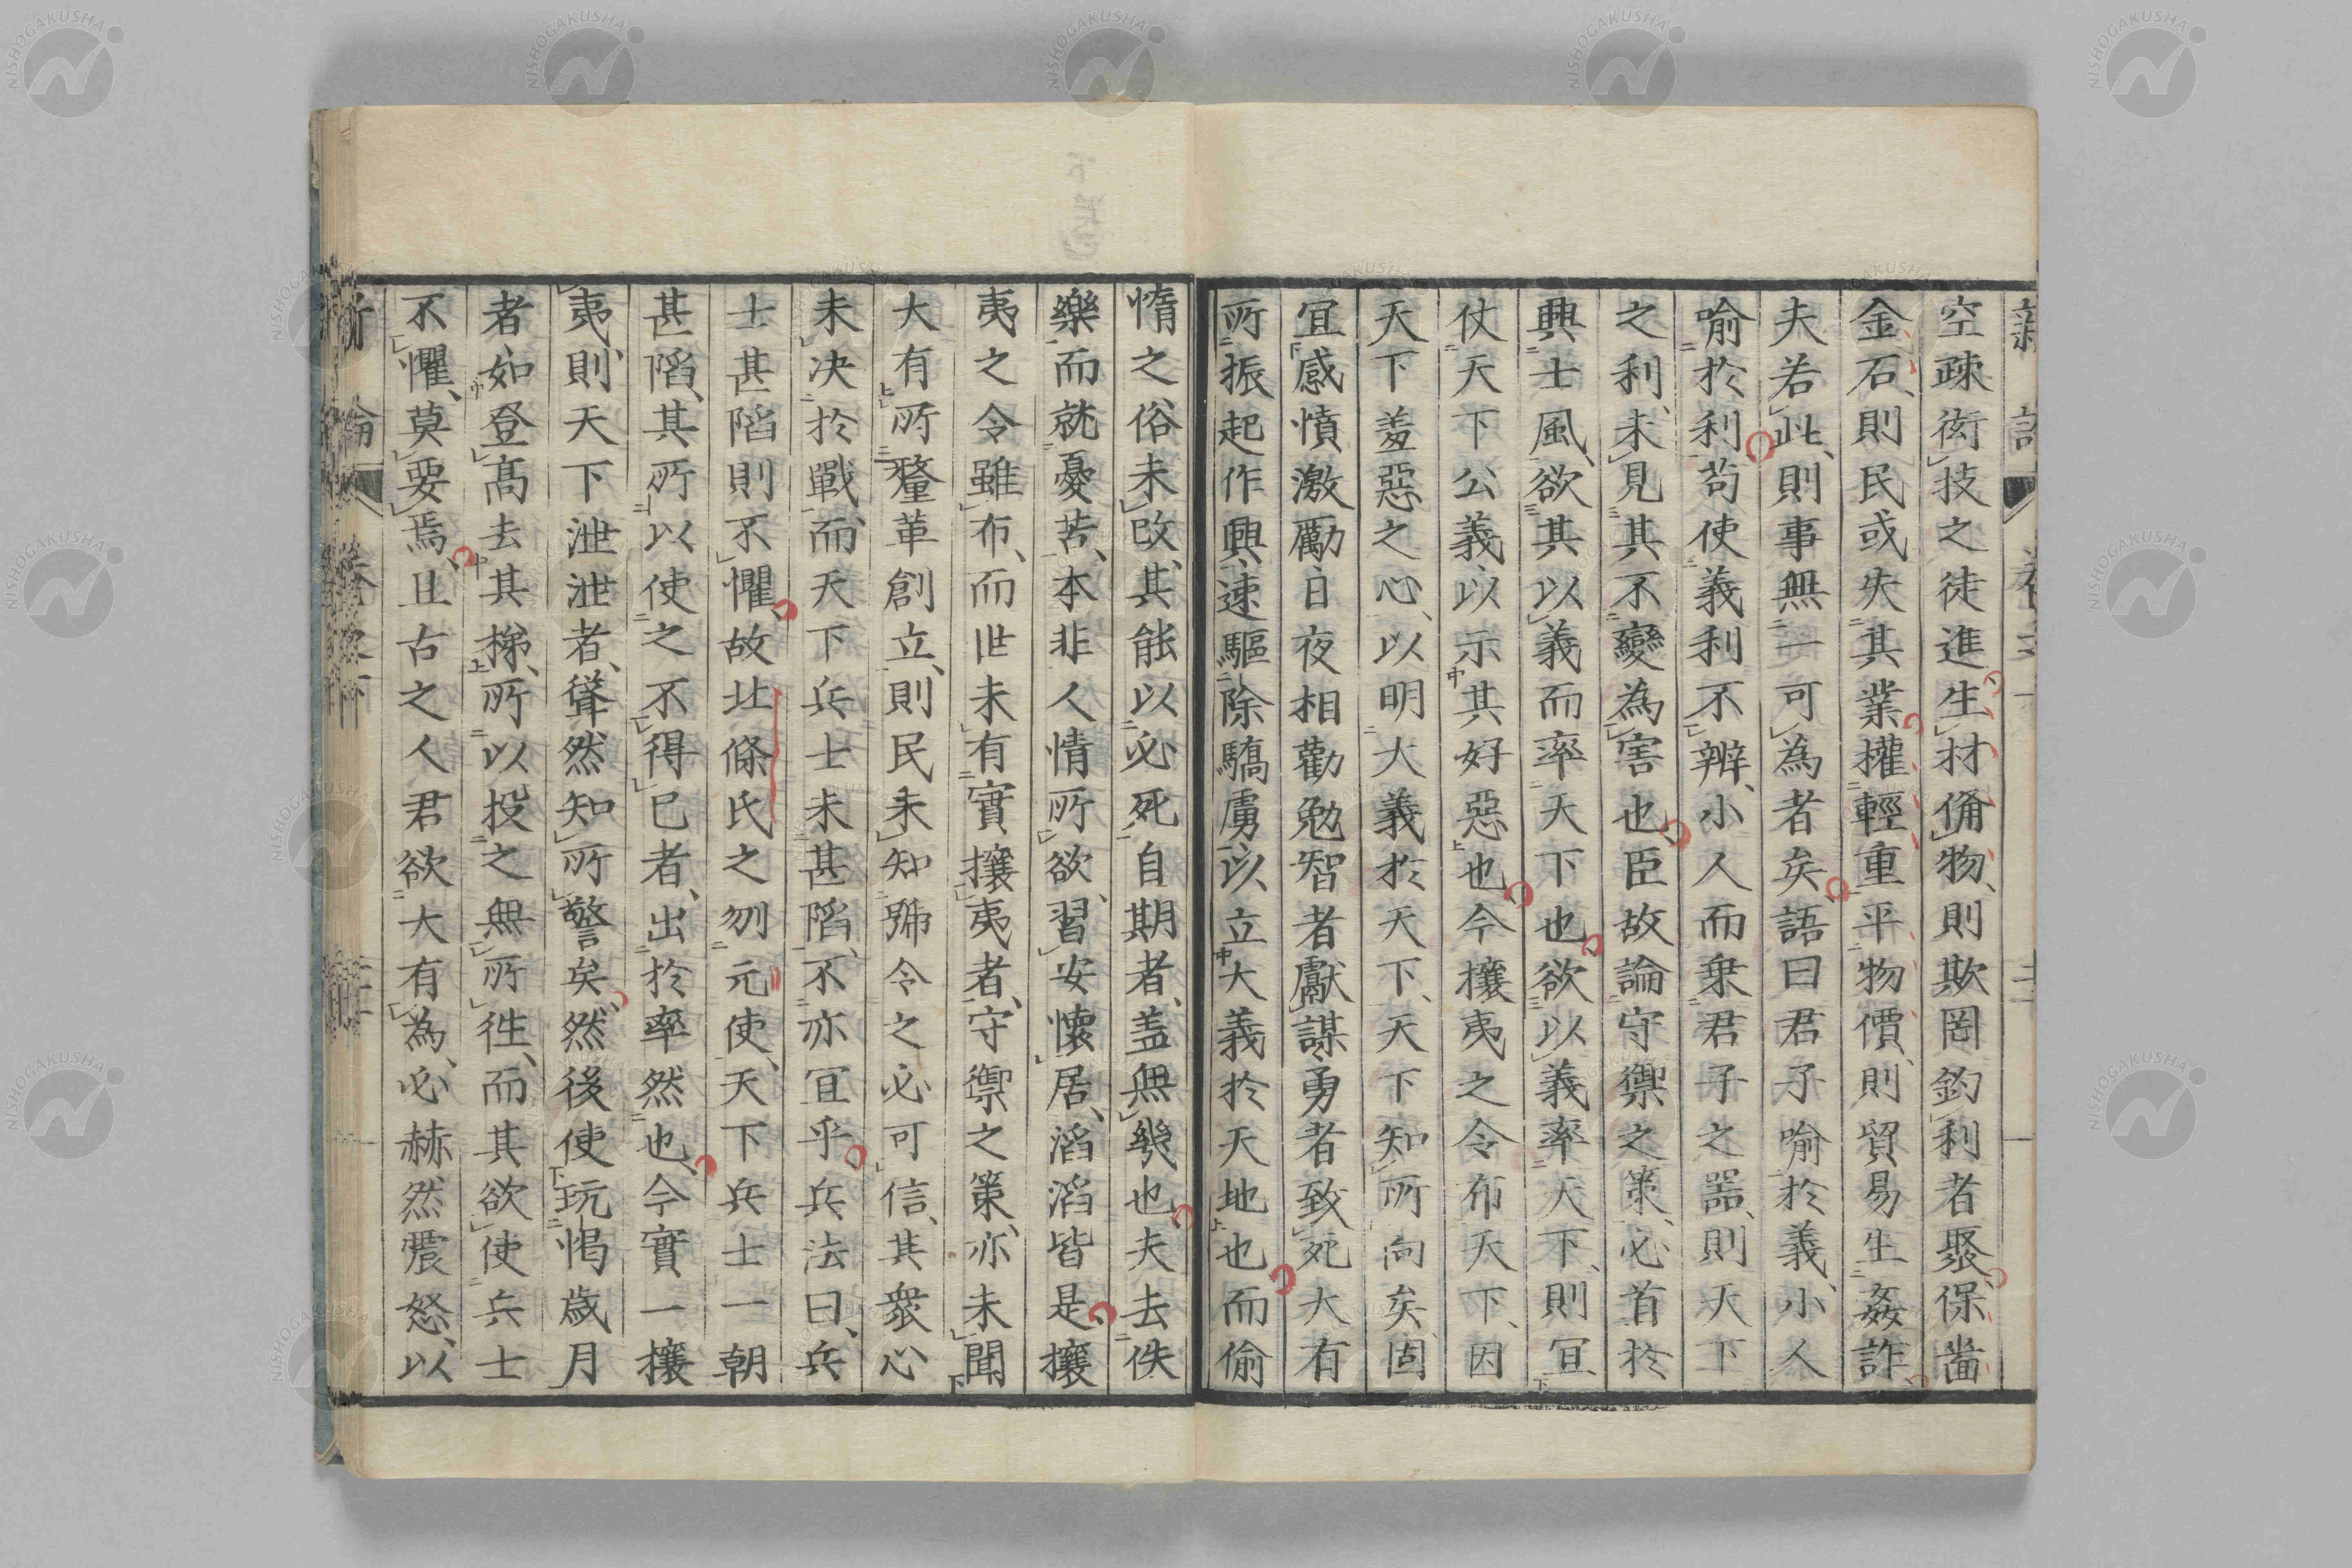 空疎衒技之徒進生材偹物則欺罔鈞利者聚保嗇
金石則民或失其業權輕重平物價則貿易生姦詐
夫若此則事無一可為者矣語曰君子喻於義小人
喻於利苟使義利不辨小人而乗君子之器則天下
之利未見其不變為害也臣故論守禦之策必首於
興士風欲其以義而率天下也欲以義率天下則冝
仗天下公義以示其好惡也今攘夷之令布天下因
天下羞惡之心以明大義於天下天下知所向矣固
冝感憤激勵日夜相勸勉智者獻謀勇者致死大有
所振起作興速驅除驕虜以立大義於天地也而偷
惰之俗未改其能以必死自期者盖無幾也夫去佚
樂而就憂苦本非人情所欲習安懷居滔滔皆是攘
夷之令雖布而世未有實攘夷者守禦之策亦未聞
大有所釐革創立則民未知號令之必可信其衆心
未决於戰而天下兵士未甚陷不亦冝乎兵法曰兵
士甚陷則不懼故北條氏之刎元使天下兵士一朝
甚陷其所以使之不得已者出於率然也今實一攘
夷則天下泄泄者聳然知所警矣然後使玩愒歳月
者如登髙去其梯所以投之無所徃而其欲使兵士
不懼莫要焉且古之人君欲大有為必赫然震怒以
新論
NISHOGAKUSHA